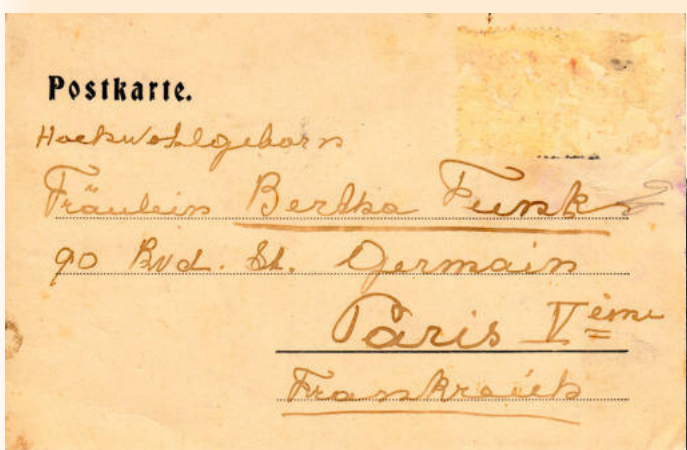 Postkarte.
Hochwohlgeborn
Fräulein Bertha Funk
90 Bvd. St. Germain
Paris Vème
Frankreich